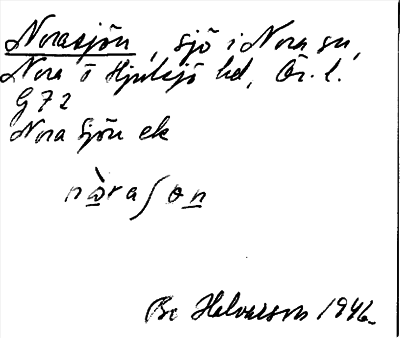 Norasjön, sjö i Nora sn,
Nora o Hjulsjö hd, Ör. l.
G72
Nora Sjön ek
nòraʃon
Bo Halvarson 1946